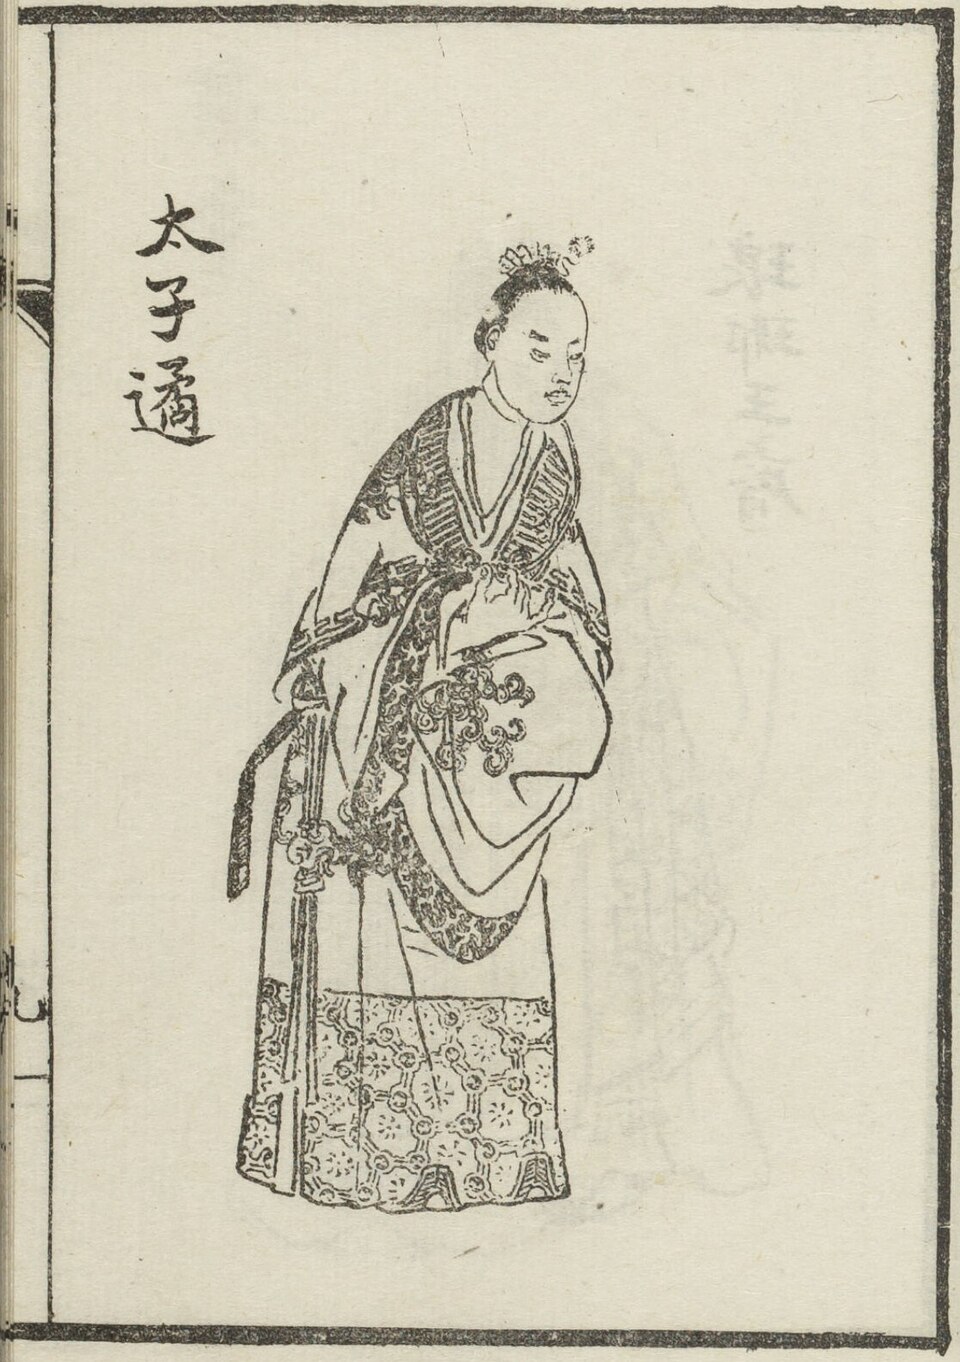 太子遹